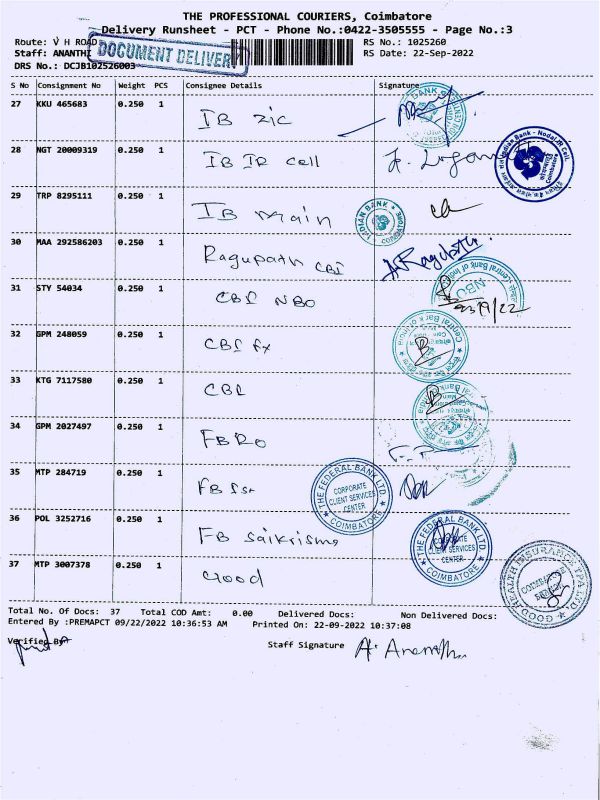 THE PROFESSIONAL COURIERS, Coimbatore
Delivery Runsheet - PCT - Phone No.:0422-3505555 - Page No.:3
Route: V H ROAD
RS No.: 1025260
Staff: ANANTHI
RS Date: 22-Sep-2022
DOCUMENT DELIVERY
DRS No.: DCJB102526003
S No Consignment No Weight PCS Consignee Details Signature
27 KKU 465683 0.250 1 IB ZIC
28 NGT 20009319 0.250 1 IB IR Cell
Indian Bank - Nodal IR Cell
Coimbatore
29 TRP 8295111 0.250 1 IB main
INDIAN BANK
30 MAA 292586203 0.250 1 Ragupath CBI
Ragupath
31 STY 54034 0.250 1 CBI NBO
Central Bank of India
NBO
32 GPM 248059 0.250 1 CBI fx
Central Bank of India
33 KTG 7117580 0.250 1 CBI
34 GPM 2027497 0.250 1 FBRO
35 MTP 284719 0.250 1
THE FEDERAL BANK LTD.
CORPORATE
CLIENT SERVICES
CENTER
COIMBATORE
36 POL 3252716 0.250 1 FB
THE FEDERAL BANK LTD.
CORPORATE
CLIENT SERVICES
CENTER
COIMBATORE
37 MTP 3007378 0.250 1 Good
GOOD HEALTH INSURANCE TPA LTD.
Total No. Of Docs: 37 Total COD Amt: 0.00 Delivered Docs: Non Delivered Docs:
Entered By :PREMAPCT 09/22/2022 10:36:53 AM Printed On: 22-09-2022 10:37:08
Verified By
Staff Signature